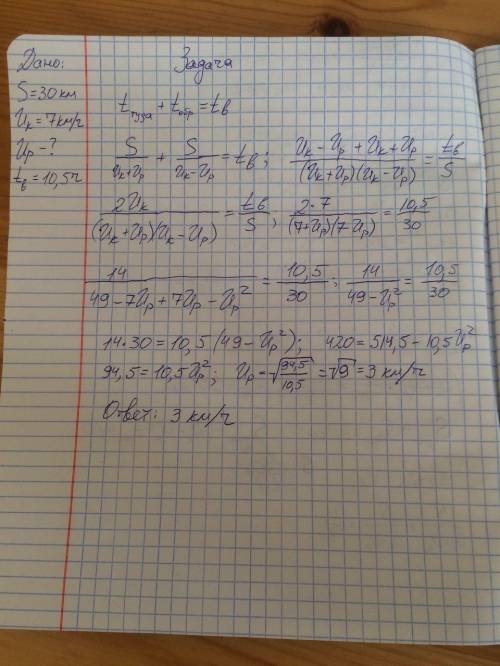 Дано:
Задача
S=30 км
𝒱к=7 км/ч
𝒱р-?
tв=10,5 ч
tтуда + tобр = tв
S/(𝒱к+𝒱р) + S/(𝒱к-𝒱р) = tв; (𝒱к-𝒱р+𝒱к+𝒱р)/((𝒱к+𝒱р)(𝒱к-𝒱р)) = tв/S
2𝒱к/((𝒱к+𝒱р)(𝒱к-𝒱р)) = tв/S; 2·7/((7+𝒱р)(7-𝒱р)) = 10,5/30
14/(49-7𝒱р+7𝒱р-𝒱р²) = 10,5/30; 14/(49-𝒱р²) = 10,5/30
14·30=10,5(49-𝒱р²); 420=514,5-10,5𝒱р²
94,5=10,5𝒱р²; 𝒱р=√(94,5/10,5)=√9=3 км/ч
Ответ: 3 км/ч